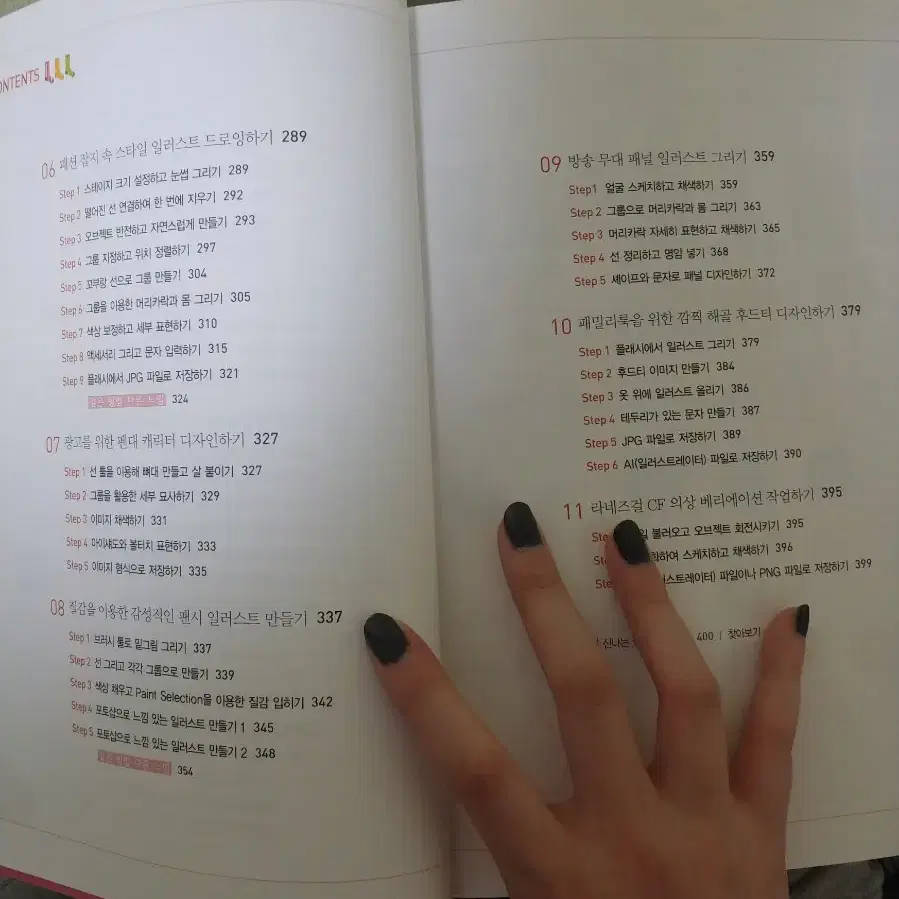 CONTENTS
06 패션 잡지 속 스타일 일러스트 드로잉하기 289
Step 1 스테이지 크기 설정하고 눈썹 그리기 289
Step 2 떨어진 선 연결하여 한 번에 지우기 292
Step 3 오브젝트 반전하고 자연스럽게 만들기 293
Step 4 그룹 지정하고 위치 정렬하기 297
Step 5 꼬부랑 선으로 그룹 만들기 304
Step 6 그룹을 이용한 머리카락과 몸 그리기 305
Step 7 색상 보정하고 세부 표현하기 310
Step 8 액세서리 그리고 문자 입력하기 315
Step 9 플래시에서 JPG 파일로 저장하기 321
같은 방법 다른 느낌 324
07 광고를 위한 팬대 캐릭터 디자인하기 327
Step 1 선 툴을 이용해 뼈대 만들고 살 붙이기 327
Step 2 그룹을 활용한 세부 묘사하기 329
Step 3 이미지 채색하기 331
Step 4 아이섀도와 볼터치 표현하기 333
Step 5 이미지 형식으로 저장하기 335
08 질감을 이용한 감성적인 팬시 일러스트 만들기 337
Step 1 브러시 툴로 밑그림 그리기 337
Step 2 선 그리고 각각 그룹으로 만들기 339
Step 3 색상 채우고 Paint Selection을 이용한 질감 입히기 342
Step 4 포토샵으로 느낌 있는 일러스트 만들기 1 345
Step 5 포토샵으로 느낌 있는 일러스트 만들기 2 348
같은 방법 다른 느낌 354
09 방송 무대 패널 일러스트 그리기 359
Step1 얼굴 스케치하고 채색하기 359
Step 2 그룹으로 머리카락과 몸 그리기 363
Step 3 머리카락 자세히 표현하고 채색하기 365
Step 4 선 정리하고 명암 넣기 368
Step 5 셰이프와 문자로 패널 디자인하기 372
10 패밀리룩을 위한 깜찍 해골 후드티 디자인하기 379
Step 1 플래시에서 일러스트 그리기 379
Step 2 후드티 이미지 만들기 384
Step 3 옷 위에 일러스트 올리기 386
Step 4 테두리가 있는 문자 만들기 387
Step 5 JPG 파일로 저장하기 389
Step 6 AI(일러스트레이터) 파일로 저장하기 390
11 라네즈걸 CF 의상 베리에이션 작업하기 395
불러오고 오브젝트 회전시키기 395
스케치하고 채색하기 396
파일이나 PNG 파일로 저장하기 399
신나는 400 | 찾아보기